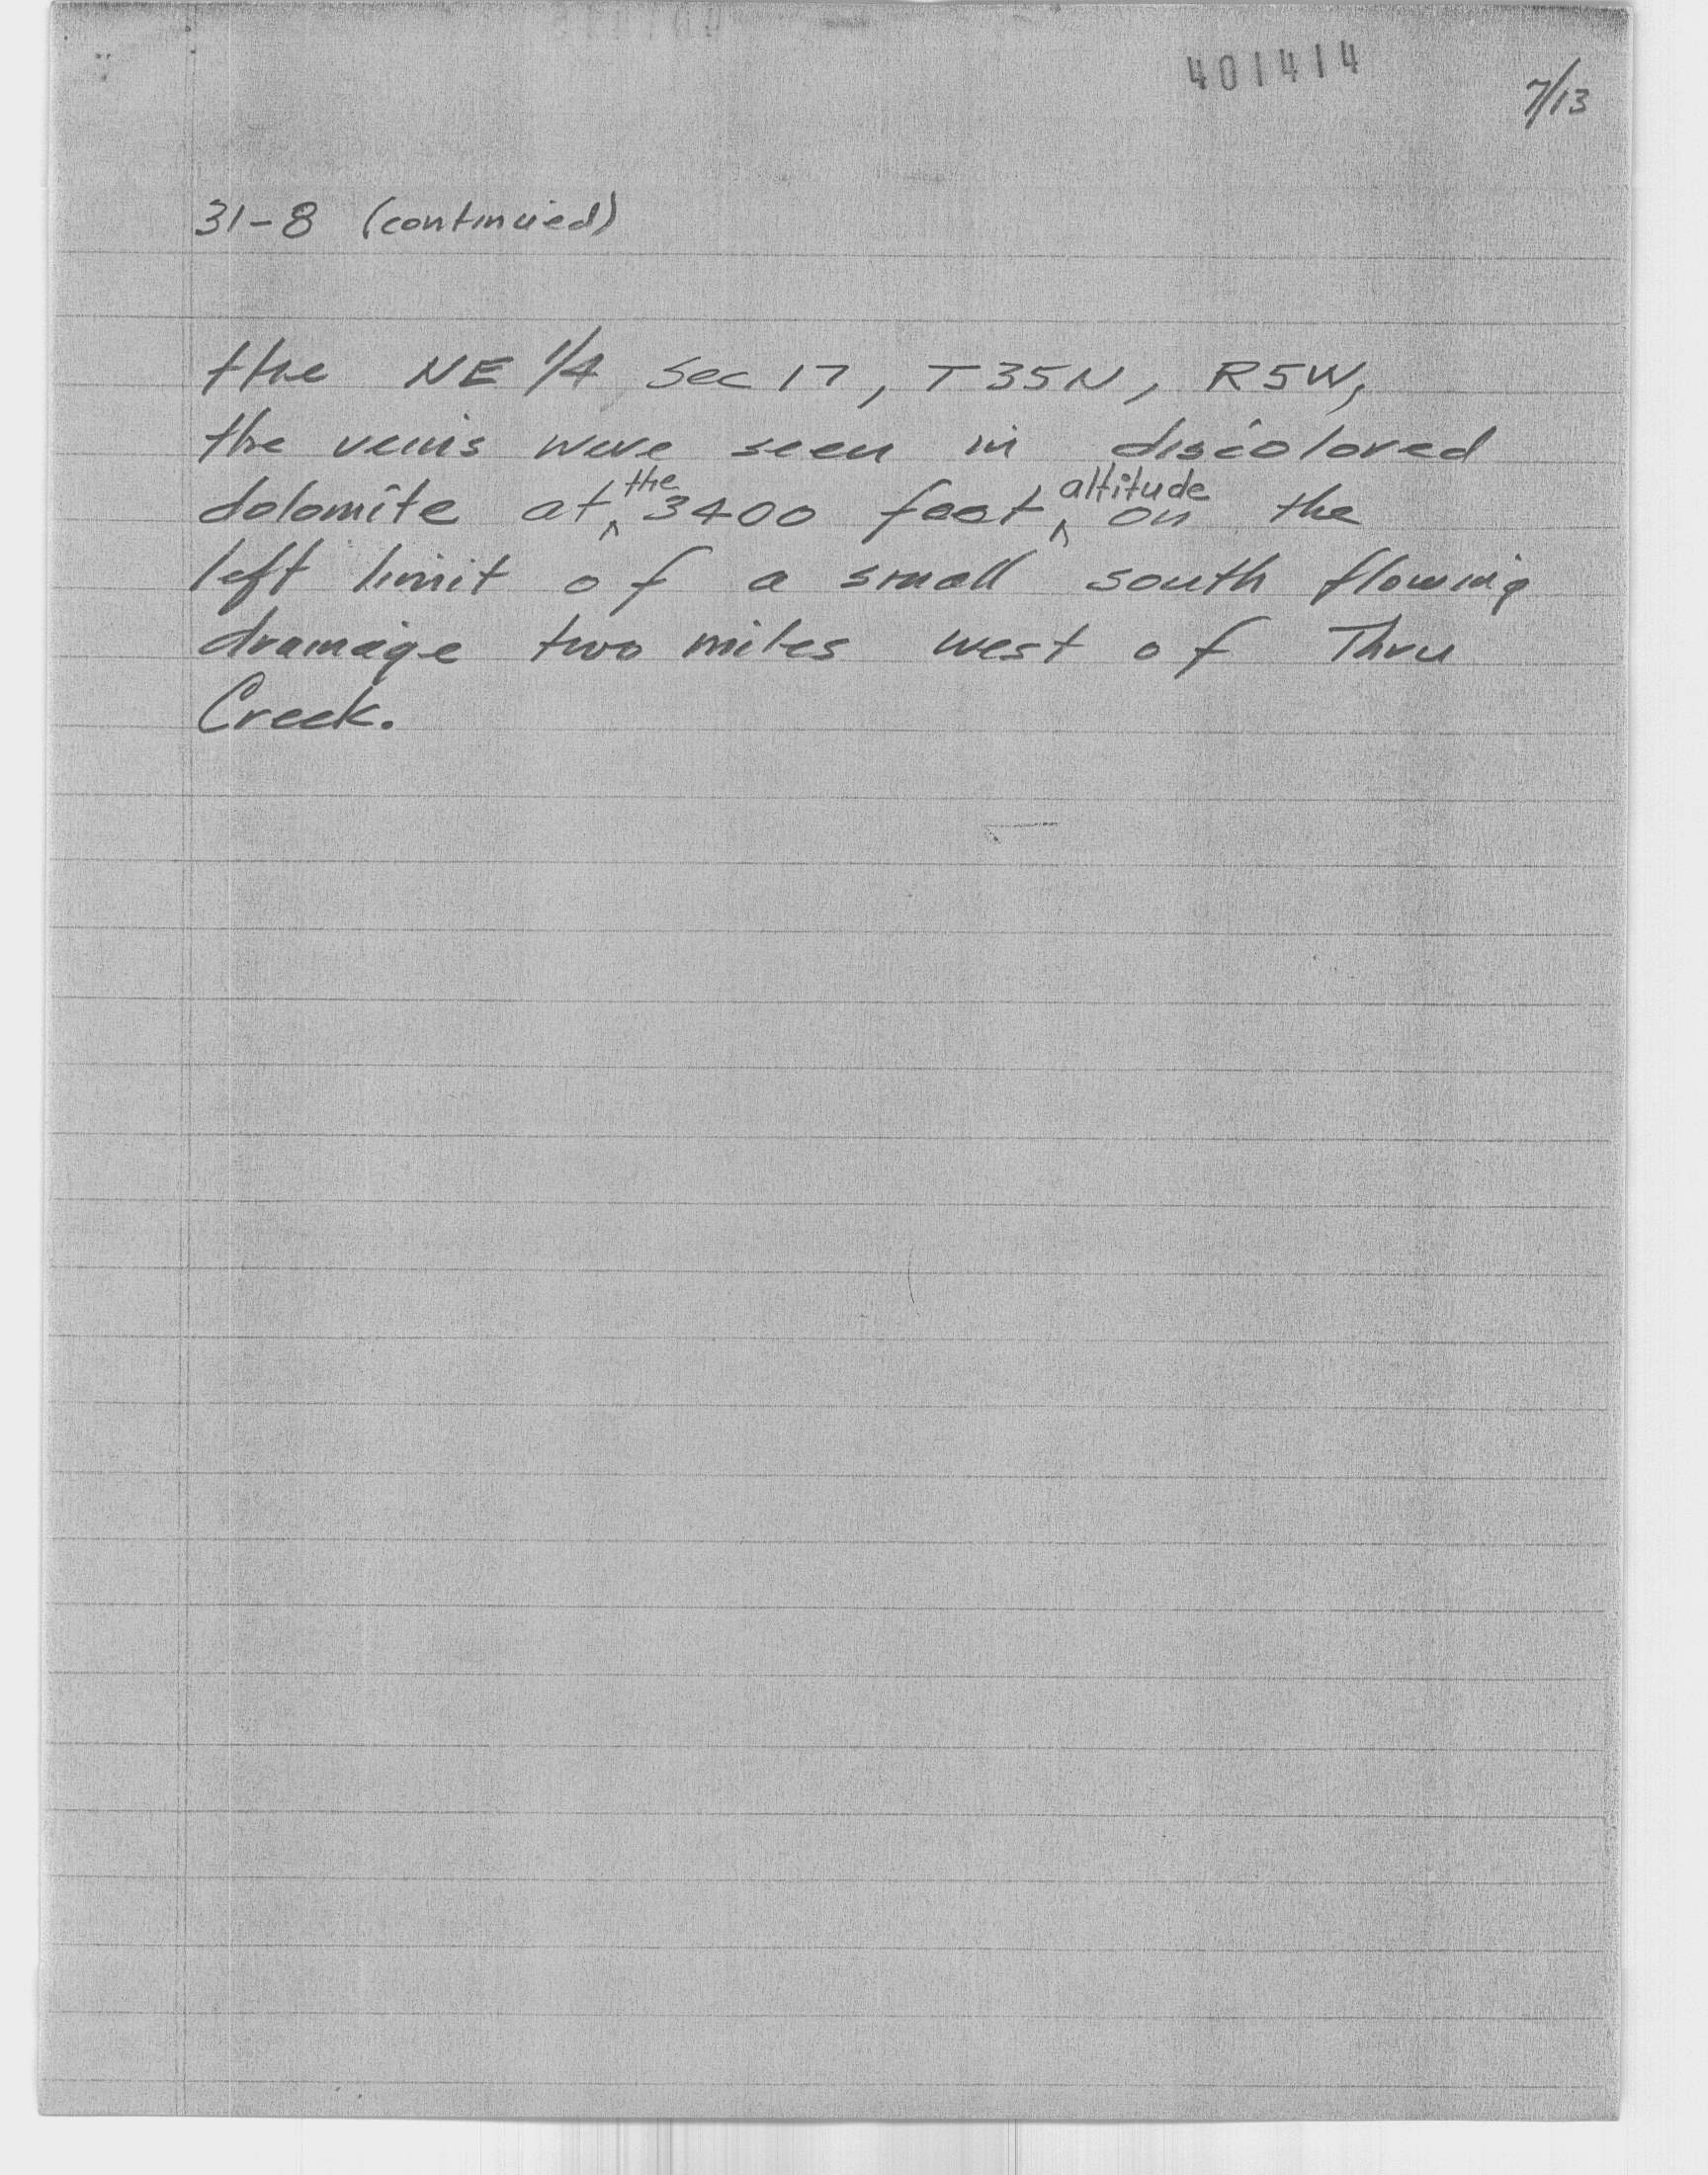 401414
7/13
31-8 (continued)
the NE 1/4 Sec 17, T35N, R5W,
the veins were seen in discolored
dolomite at ^the 3400 foot ^altitude on the
left limit of a small south flowing
drainage two miles west of Thru
Creek.